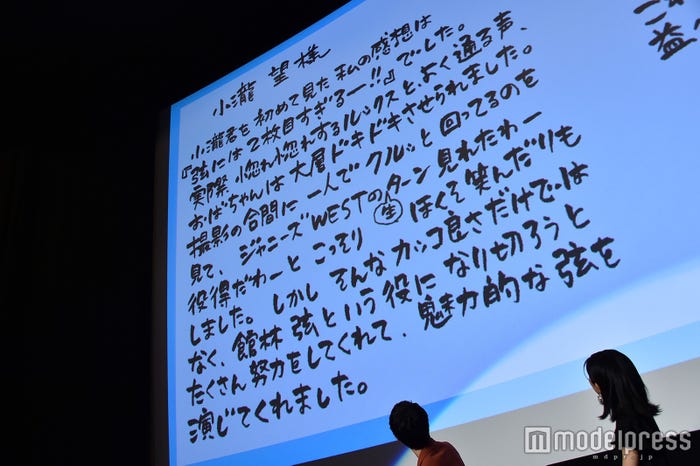 小瀧 望 様
小瀧君を初めて見た私の感想は
『弦には2枚目すぎるー!!』でした。
実際、惚れ惚れするルックスと、よく通る声、
おばちゃんは大層ドキドキさせられました。
撮影の合間に一人でクルッと回ってるのを
見て、ジャニーズWESTの生ターン見れたわー
役得だわーとこっそりほくそ笑んだりも
しました。しかしそんなカッコ良さだけでは
なく、館林 弦という役になり切ろうと
たくさん努力をしてくれて、魅力的な弦を
演じてくれました。
益
modelpress
mdpr.jp